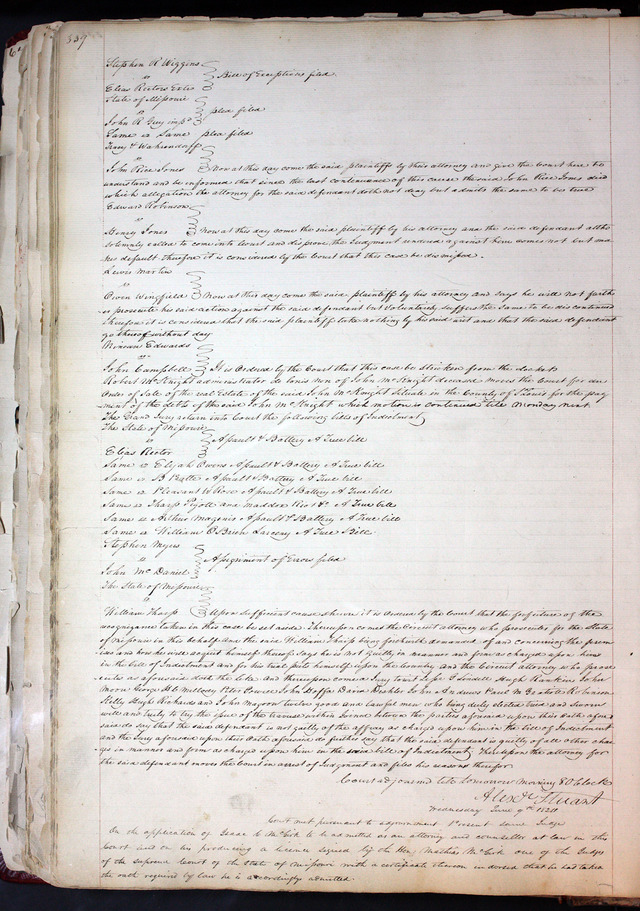 339
Stephen R Wiggins
vs
Bill of Exceptions filed.
Elias Rectors Exrs
State of Missouri
vs
plea filed
John R Guy
Same vs Same plea filed
Terry & Wahrendorff
vs
John Rice Jones Now at this day come the said plaintiffs by their attorney and give the Court here to
understand and be informed that since the last continuance of this cause the said John Rice Jones died
which allegation the attorney for the said defendant doth not deny but admits the same to be true
Edward Robinson
vs
Henry Jones Now at this day come the said plaintiff by his attorney and the said defendant altho
solemnly called to come into Court and disprove the Judgment rendered against him comes not but ma
kes default Therefore it is considered by the Court that this case be dismissed.
Lewis Martin
vs
Owen Wingfield Now at this day comes the said plaintiff by his attorney and says he will not furth
er prosecute his said action against the said defendant but voluntarily suffers the same to be discontinued
Therefore it is considered that the said plaintiff take nothing by his said writ and that the said defendant
go thereof without day
Ninian Edwards
vs
John Campbell It is Ordered by the Court that this case be stricken from the docket
Robert McKnight administrator de bonis non of John McKnight deceased moves the Court for an
Order of Sale of the real Estate of the said John McKnight Situate in the County of St Louis for the pay
ment of the debts of the said John McKnight which motion is continued till Monday next
The Grand Jury return into Court the following bills of Indictment
The State of Missouri
vs
Assault & Battery A True bill
Elias Rector
Same vs Elijah Owens Assault & Battery A True bill
Same vs B Pratte Assault & Battery A True bill
Same vs Pleasant Rose Assault & Battery A True bill
Same vs Tharp and Maddox Riot &c A True bill
Same vs Arthur Magenis Assault & Battery A True bill
Same vs William O'Brien Larceny A True Bill
Stephen Myers
vs
Assignment of Errors filed
John McDaniel
The State of Missouri
vs
William Tharp Upon sufficient cause shewn it is ordered by the Court that the forfeiture of the
recognizance taken in this case be set aside. Thereupon comes the Circuit attorney who prosecutes for the State
of Missouri in this behalf and the said William Tharp being forthwith demanded of and concerning the prem
ises and how he will acquit himself thereof says he is not guilty in manner and form as charged upon him
in the bill of Indictment and for his trial puts himself upon the Country and the Circuit attorney who prose
cutes as aforesaid doth the like and thereupon comes a Jury to wit Jesse G Lindell Hugh Rankin John
Moore George H C Melloney Peter Powell John Goffe David Deshler John Andrews Paul M Gratiot Robinson
Kelly Hugh Richards and John Magwire twelve good and lawful men who being duly elected tried and Sworn
well and truly to try the issue of the traverse within Joined between the parties aforesaid upon their Oath afore
said do say that the said defendant is not guilty of the affray as charged upon him in the bill of Indictment
and the Jury aforesaid upon their Oath aforesaid do further say that the said defendant is guilty of all other char
ges in manner and form as charged upon him in the said bill of Indictment. Thereupon the attorney for
the said defendant moves the Court in arrest of Judgment and files his reasons therefor
Court adjourned till tomorrow Morning 8 O Clock
Alexr Stuart
Wednesday June 9th 1824
Court met pursuant to adjournment. Present same Judge
On the application of Isaac McGirk to be admitted as an attorney and counsellor at law in this
Court and on his producing a licence signed by the Hon. Mathias McGirk one of the Judges
of the supreme Court of the State of Missouri with a certificate thereon indorsed that he had taken
the oath required by law he is accordingly admitted.